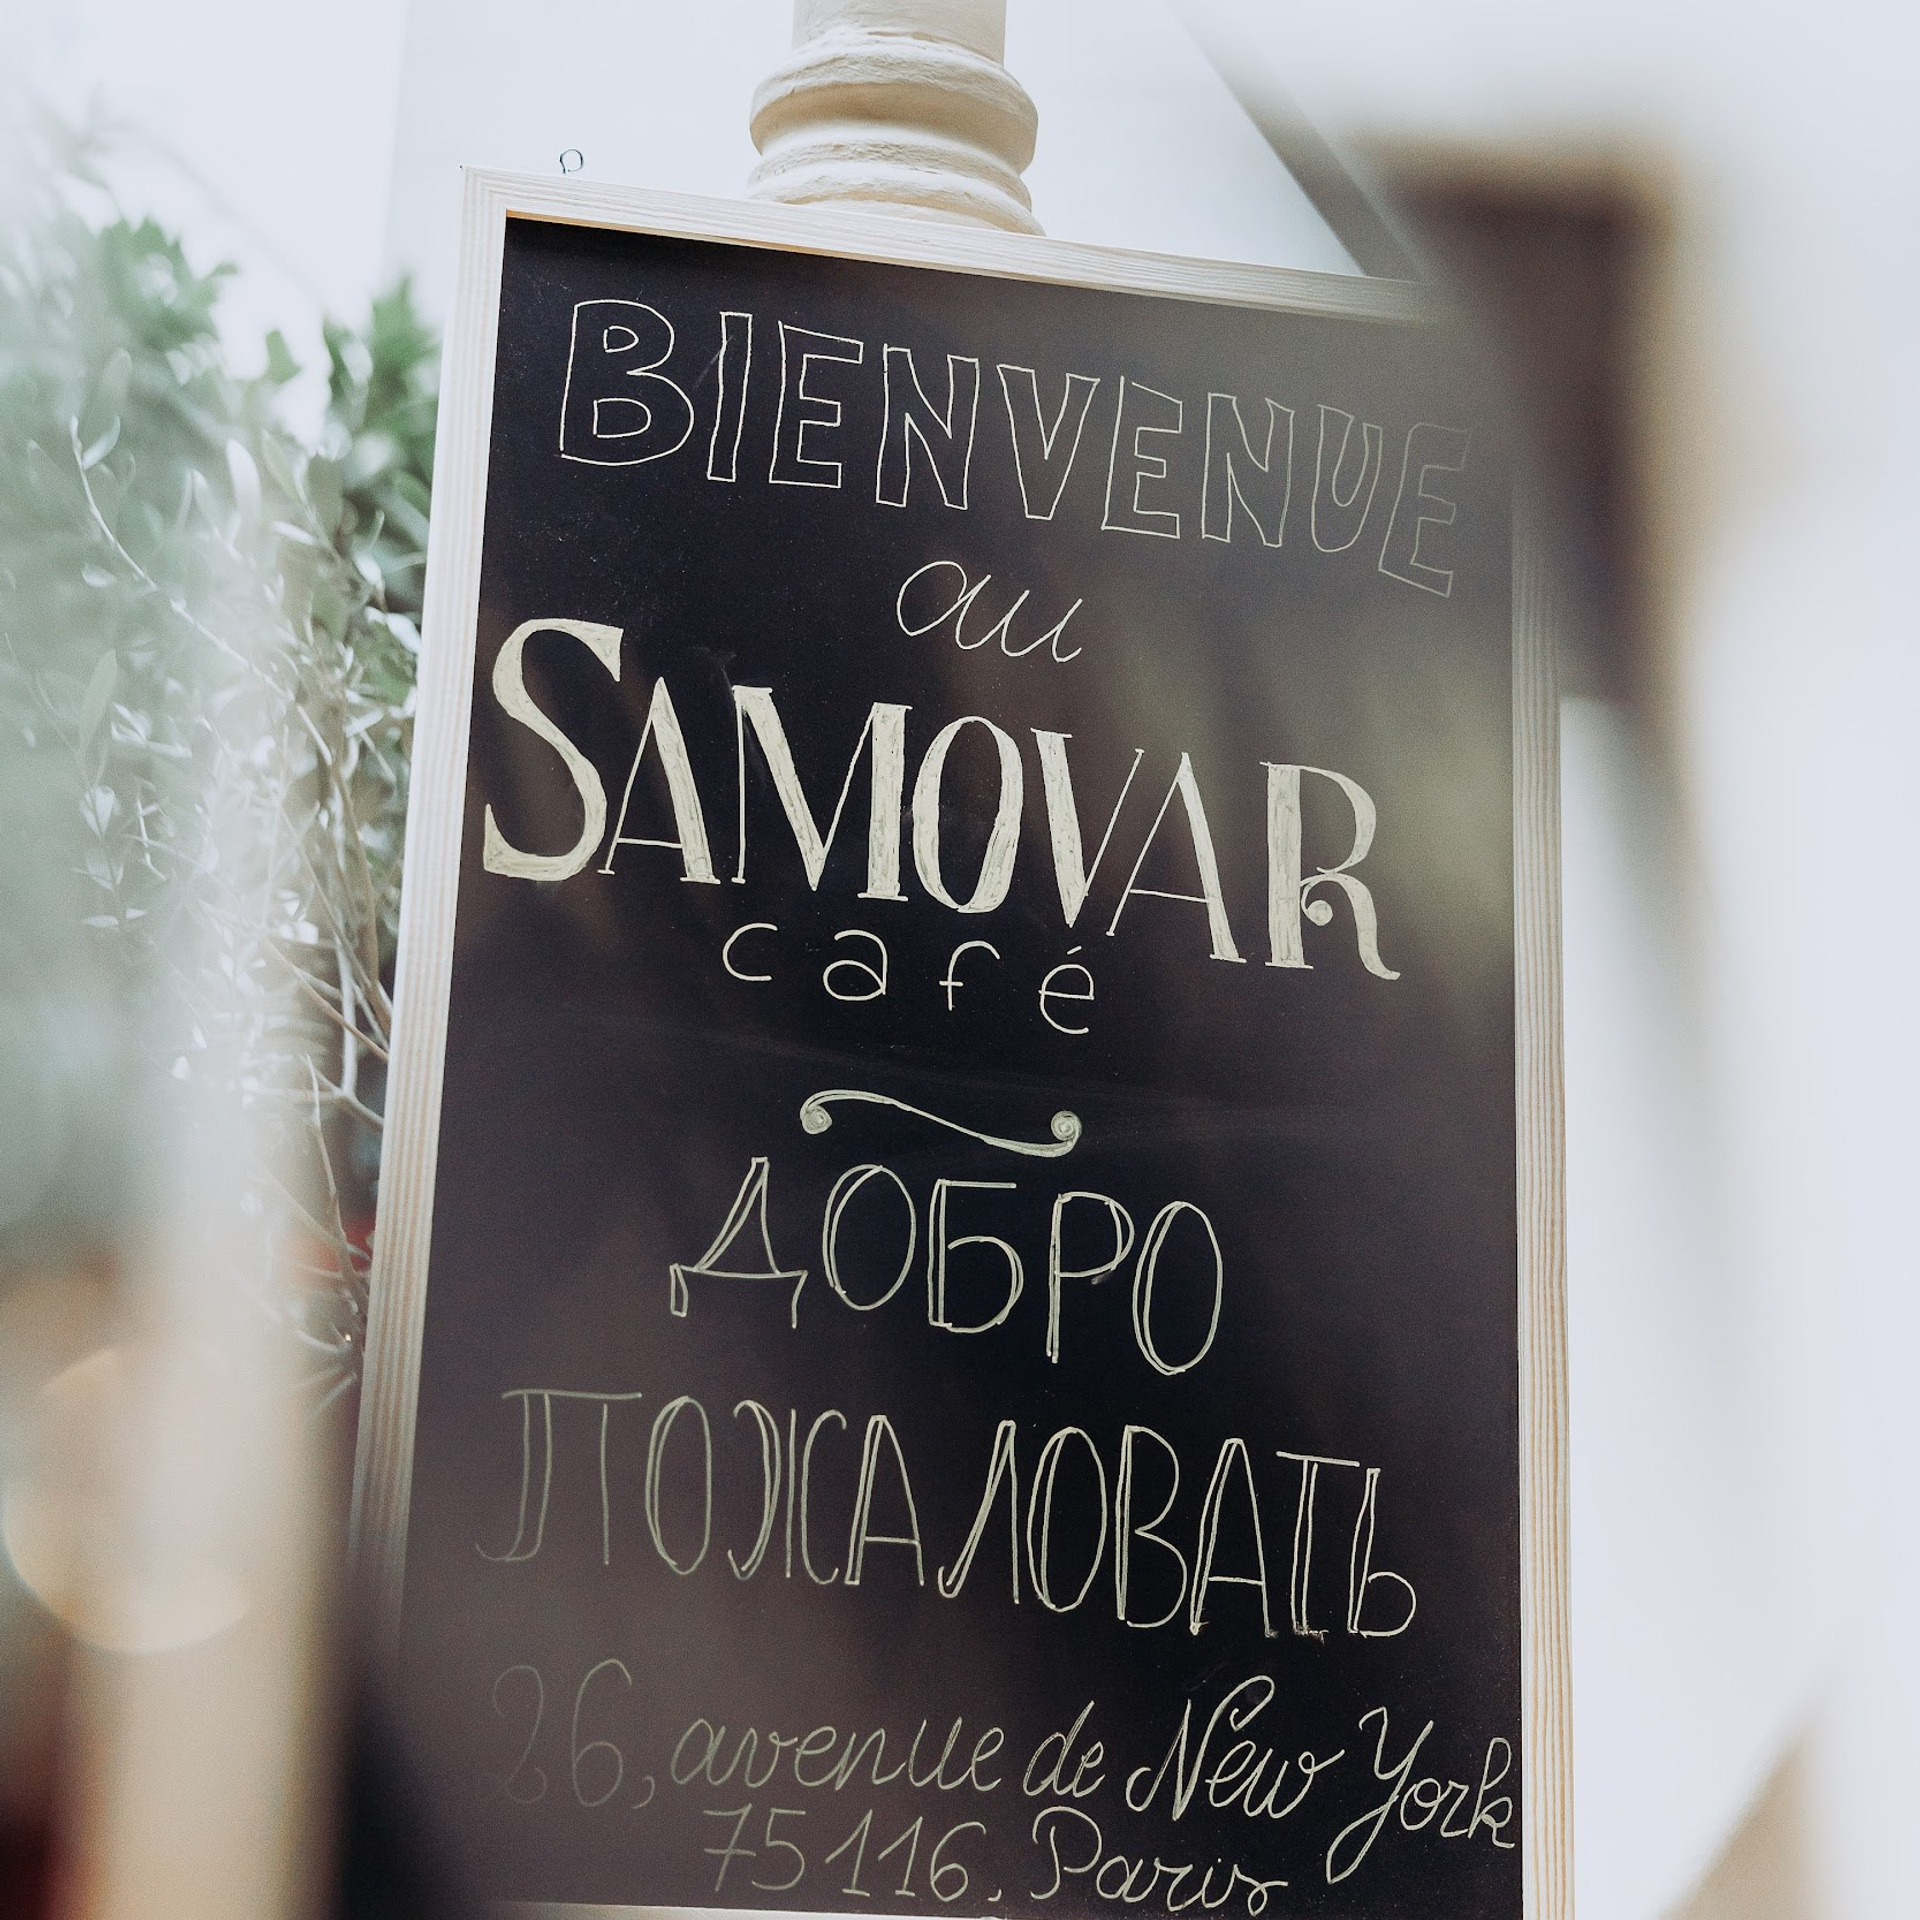 BIENVENUE
au
SAMOVAR
café
ДОБРО
ПОЖАЛОВАТЬ
26, avenue de New York
75116. Paris